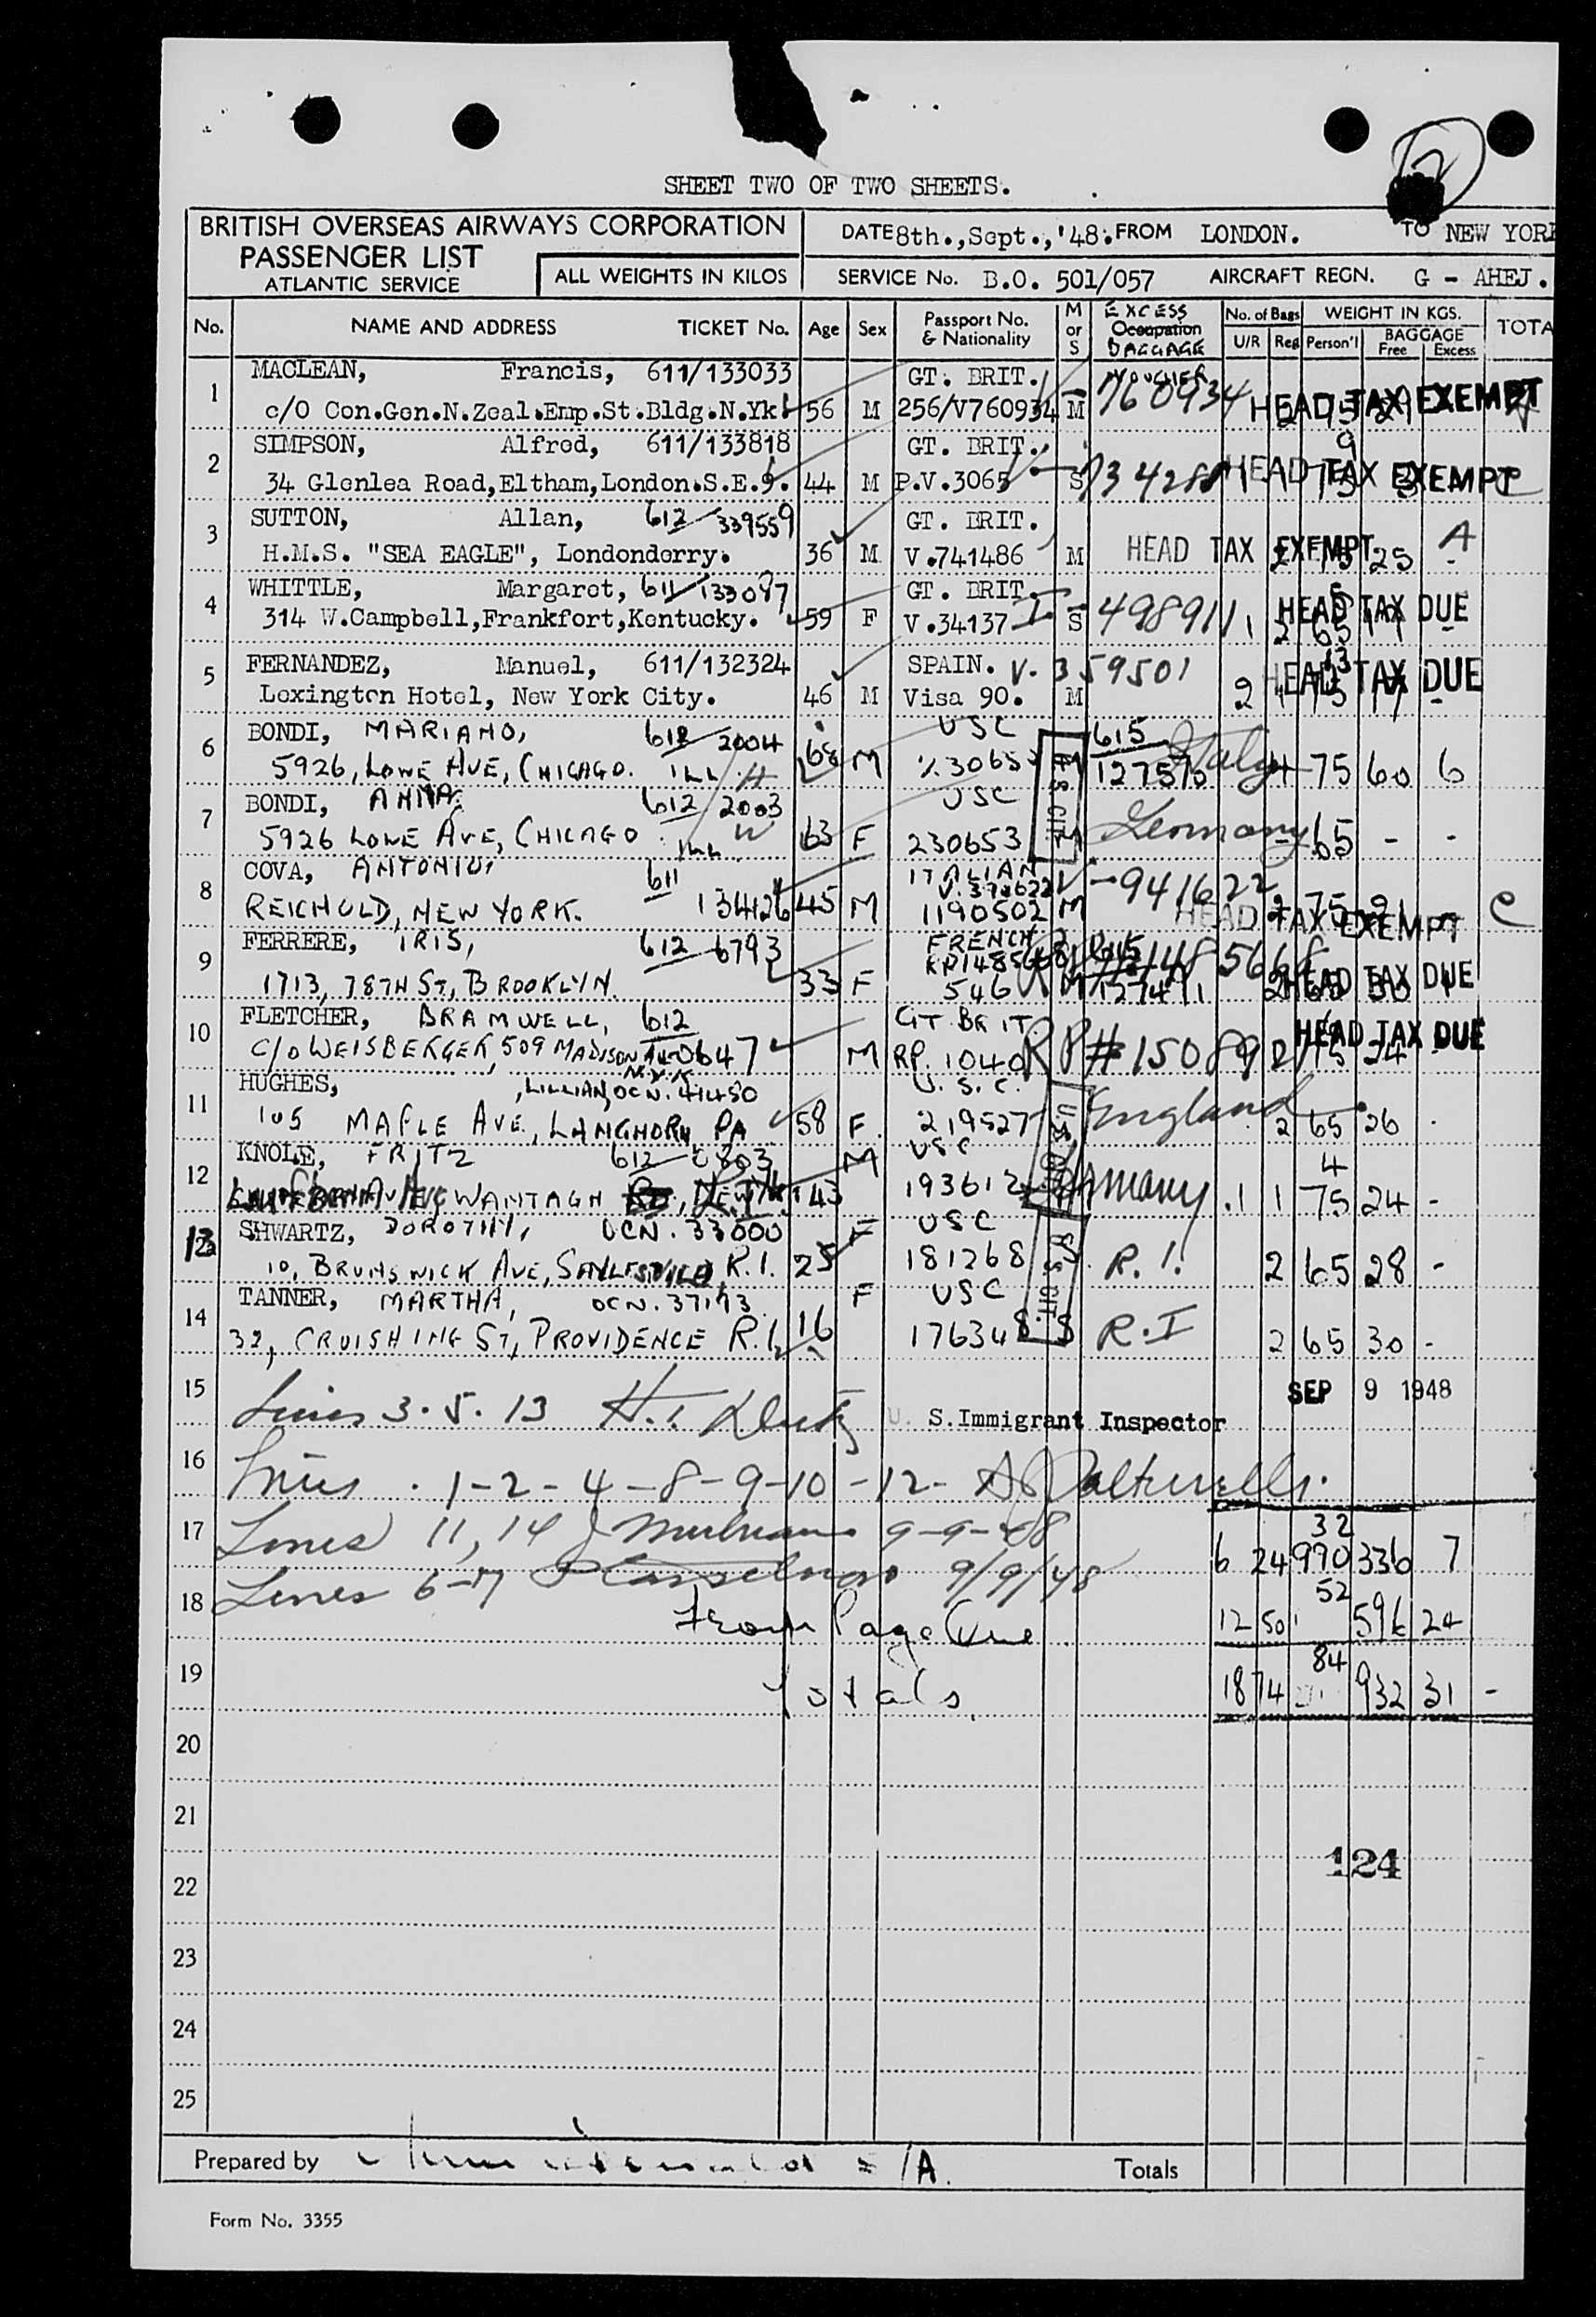 SHEET TWO OF TWO SHEETS.
BRITISH OVERSEAS AIRWAYS CORPORATION
PASSENGER LIST
ATLANTIC SERVICE
ALL WEIGHTS IN KILOS
DATE 8th.,Sept.,'48. FROM LONDON. TO NEW YORK
SERVICE No. B.O. 501/057 AIRCRAFT REGN. G - AHEJ.
No. NAME AND ADDRESS TICKET No. Age Sex Passport No. & Nationality M or S EXCESS Occupation BAGGAGE VOUCHER No. of Bags U/R Reg WEIGHT IN KGS. Person'l BAGGAGE Free Excess TOTA
1 MACLEAN, Francis, 611/133033 GT. BRIT. 760934 HEAD TAX EXEMPT
c/o Con.Gen.N.Zeal.Emp.St.Bldg.N.Yk. 56 M 256/V760934 M
2 SIMPSON, Alfred, 611/133818 GT. BRIT. HEAD TAX EXEMPT
34 Glenlea Road,Eltham,London.S.E.9. 44 M P.V.3065 S
3 SUTTON, Allan, 612 339559 GT. BRIT. A
H.M.S. "SEA EAGLE", Londonderry. 36 M V.741486 M HEAD TAX EXEMPT 25 -
4 WHITTLE, Margaret, 611/133087 GT. BRIT. HEAD TAX DUE
314 W.Campbell,Frankfort,Kentucky. 59 F V.34137 I S 498911 1 2 65
5 FERNANDEZ, Manuel, 611/132324 SPAIN. V. 359501 13 HEAD TAX DUE
Lexington Hotel, New York City. 46 M Visa 90. M 2
6 BONDI, MARIANO, 612 2004 USC 615 Italy
5926, LOWE AVE, CHICAGO. ILL 68 M 127575 75 60 6
7 BONDI, ANNA, 612 2003 USC
5926 LOWE AVE, CHICAGO ILL W 63 F 230653 Germany 65 - -
8 COVA, ANTONIO, 611 ITALIAN 941622
REICHOLD, NEW YORK. 134126 45 M 1190502 M HEAD TAX EXEMPT C
9 FERRERE, IRIS, 612 6793 FRENCH
1713, 78TH ST, BROOKLYN. 33 F 546 HEAD TAX DUE
10 FLETCHER, BRAMWELL, 612 GT BRIT HEAD TAX DUE
C/O WEISBERGER, 509 MADISON AVE 0647 N.Y.K. M RP. 1040 RP#150892
11 HUGHES, LILLIAN, OCN. 41450 U.S.C. England
105 MAPLE AVE., LANGHORN, PA 58 F 219527 U.S. CIT. 2 65 26 -
12 KNOLE, FRITZ 612 0803 M USC 4
WANTAGH 43 193612 Germany 1 1 75 24 -
13 SHWARTZ, DOROTHY, OCN. 33000 F USC
10, BRUNSWICK AVE, R.I. 25 181268 R.I. 2 65 28 -
14 TANNER, MARTHA, OCN. 37193 F USC
32, CRUISHING ST, PROVIDENCE R.I. 16 176348 S R.I 2 65 30 -
15 SEP 9 1948
Lines 3. 5. 13 U. S.Immigrant Inspector
16
Lines . 1-2-4-8-9-10-12-
17 Lines 11, 14 9-9-48 32
6 24 990 336 7
18 Lines 6-7 9/9/48 52
From Page One 12 50 596 24
19 84
Totals 18 74 932 31 -
20
21
124
22
23
24
25
Prepared by Totals
Form No. 3355